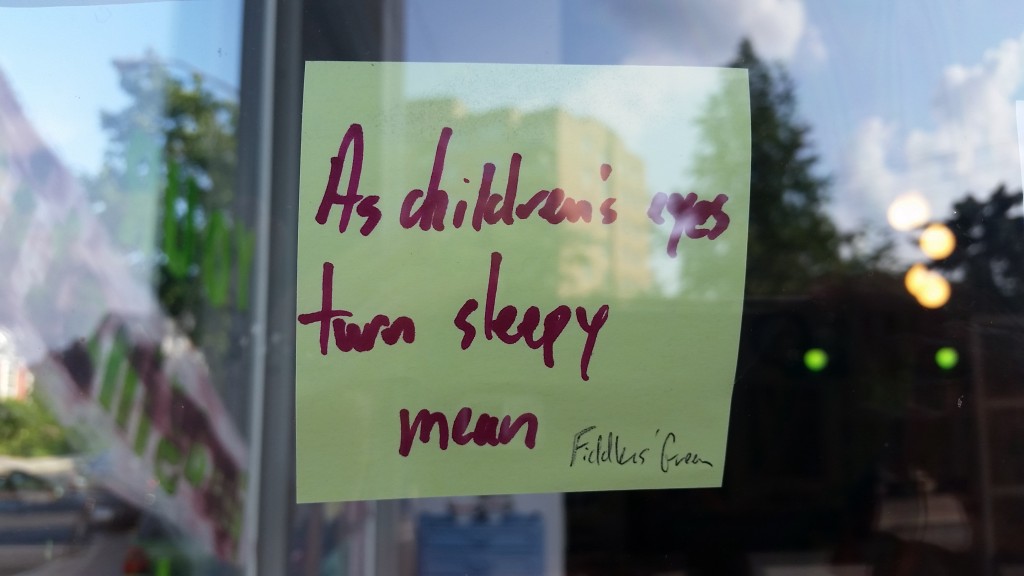 As children's eyes
turn sleepy
mean
Fiddlers' Green